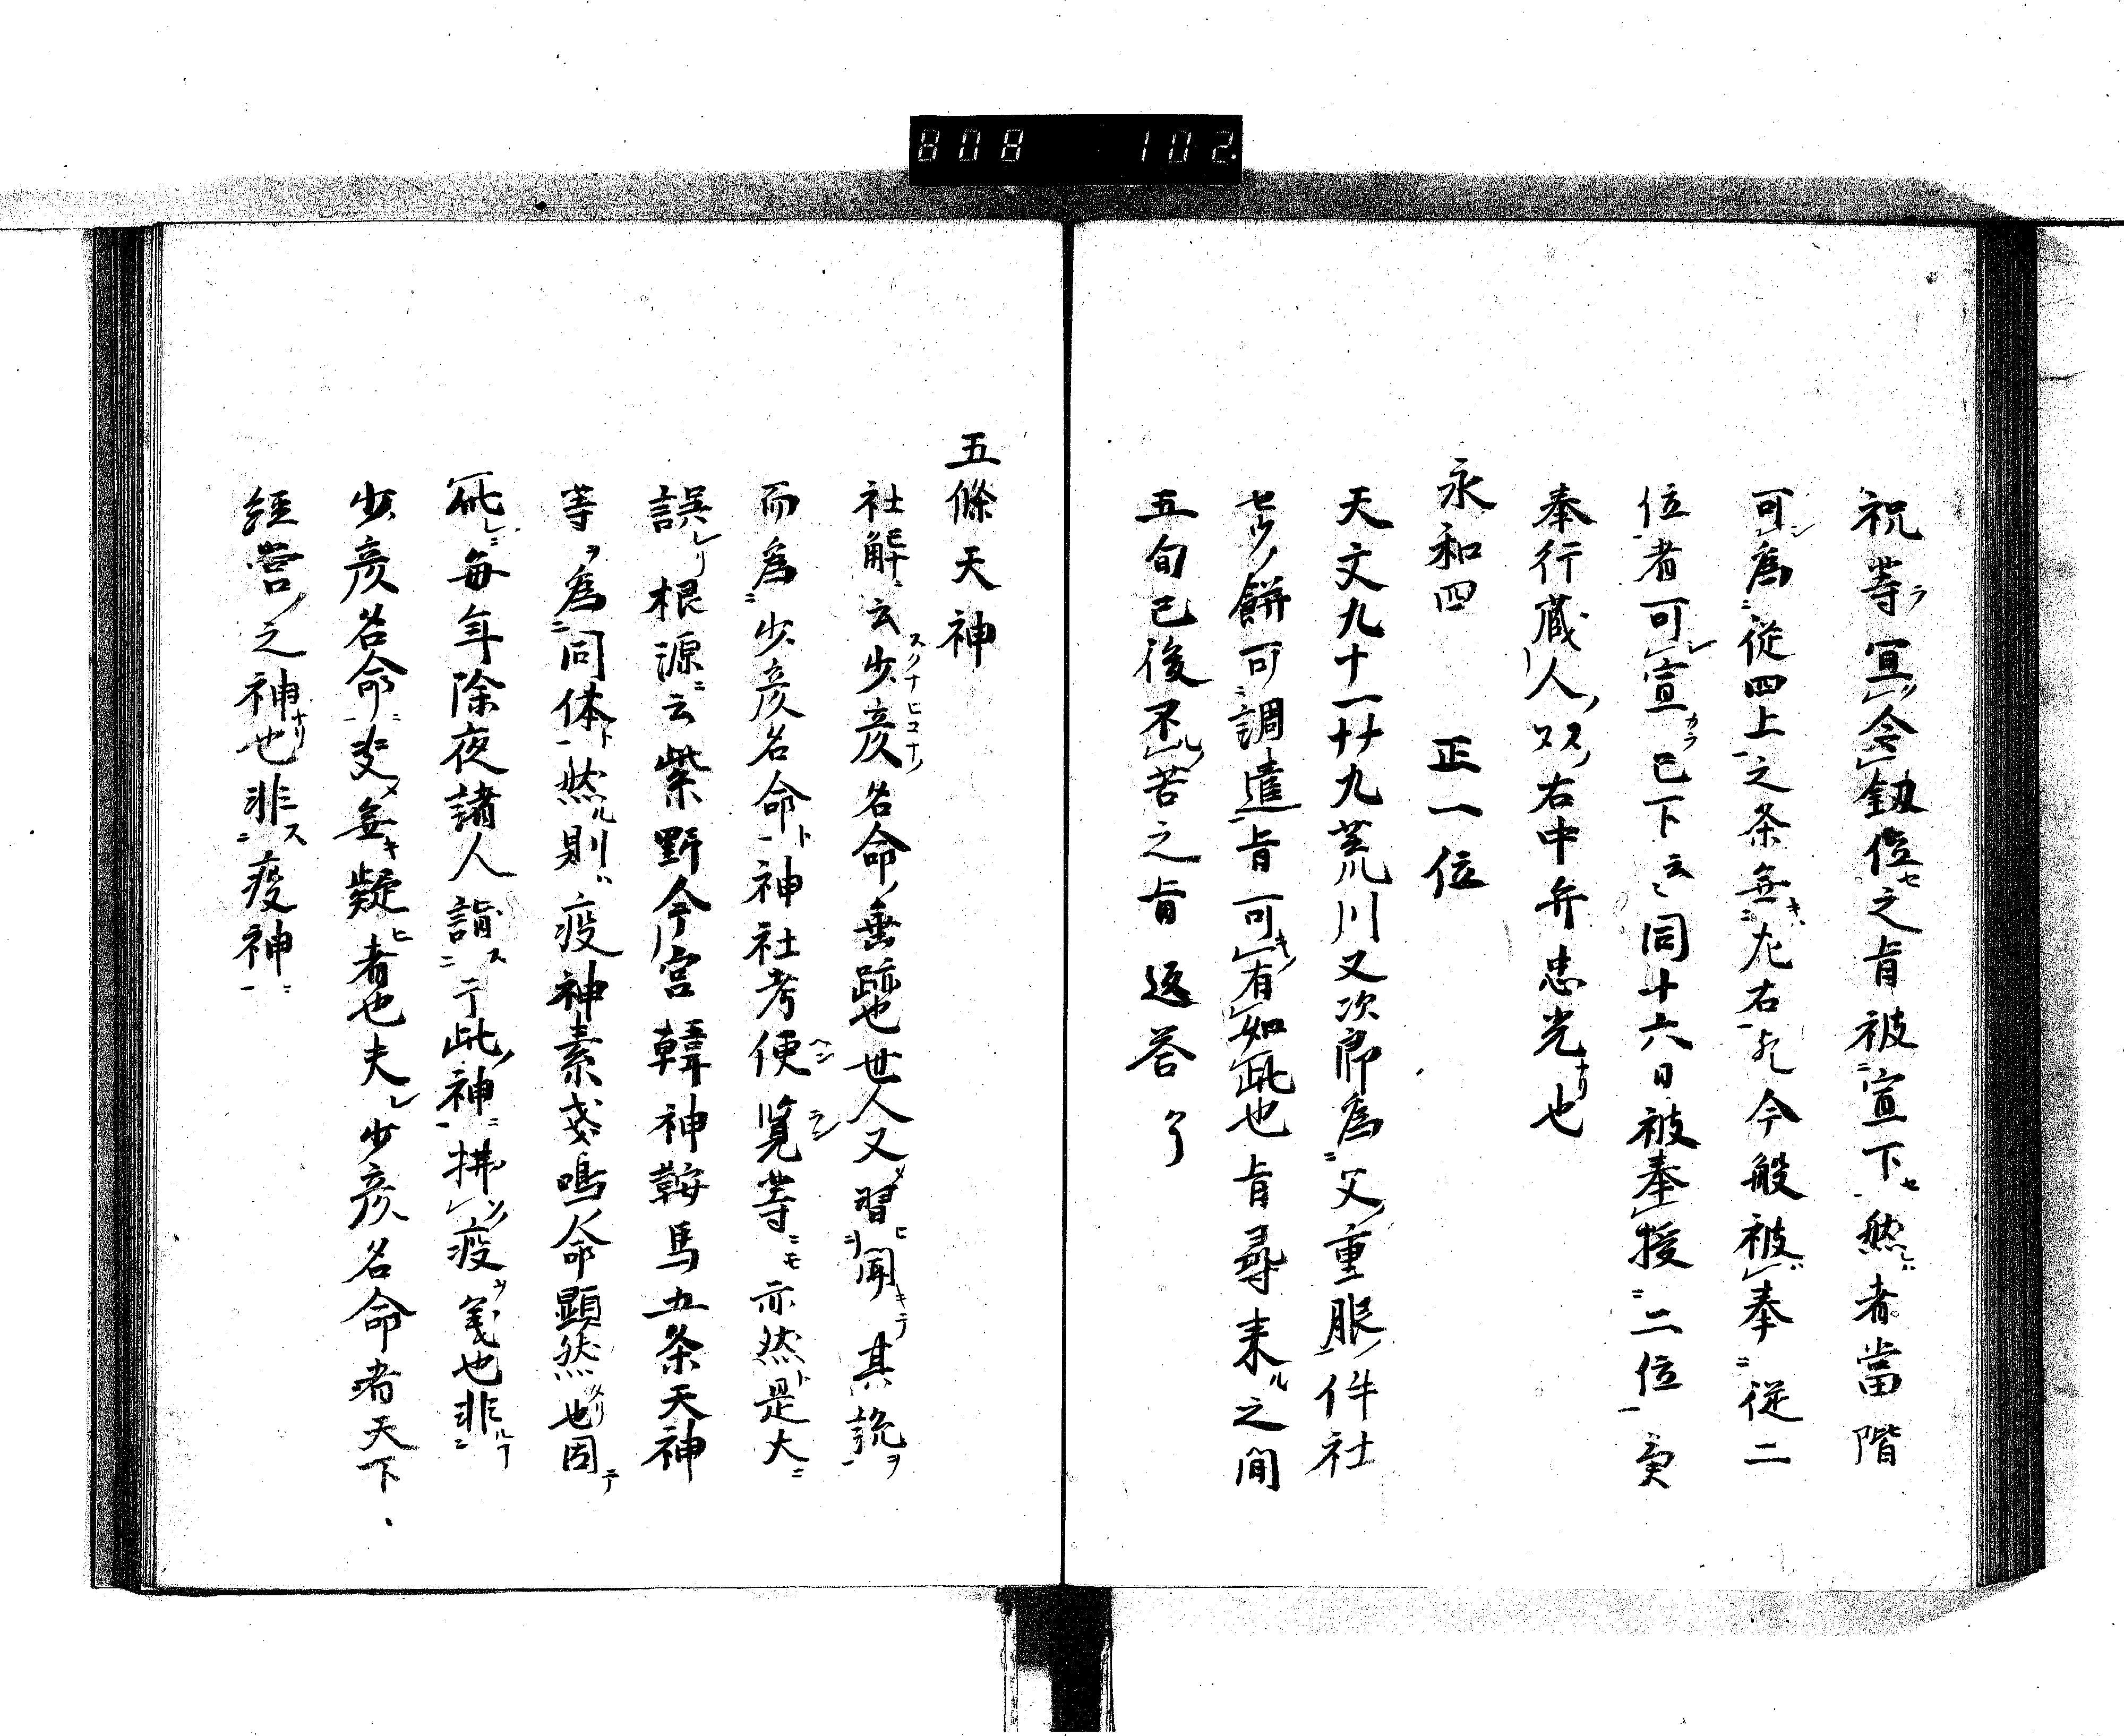 808 102.
祝等冝令叙位之旨被宣下然者當階
可為從四上之条無左右然今般被奉從二
位者可宣已下云〻同十六日被奉授二位
奉行蔵人右中弁忠光也
永和四 正一位
天文九十一廿九荒川又次郎為父重服件社
餅可調進旨可有如此也旨尋来之間
五旬已後不苦之旨返答了
五條天神
社解云少彦名命垂跡也世人又習聞其説
而為少彦名命神社考便覧等亦然是大
誤根源云紫野今宮韓神鞍馬五条天神
等為同体然則疫神素戔嗚命顕然也因
此毎年除夜諸人詣于此神拂疫鬼也非
少彦名命更無疑者也夫少彦名命者天下
經営之神也非疫神